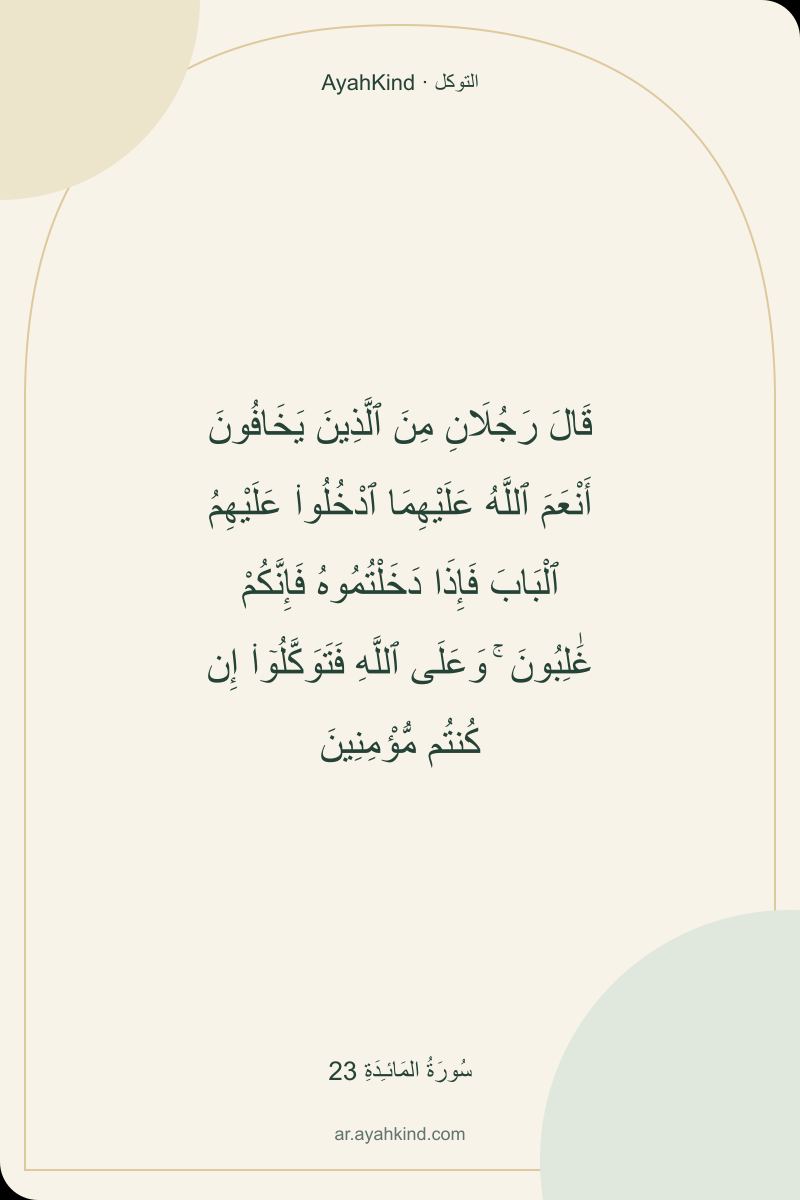 التوكل · AyahKind
قَالَ رَجُلَانِ مِنَ ٱلَّذِينَ يَخَافُونَ
أَنْعَمَ ٱللَّهُ عَلَيْهِمَا ٱدْخُلُوا۟ عَلَيْهِمُ
ٱلْبَابَ فَإِذَا دَخَلْتُمُوهُ فَإِنَّكُمْ
غَٰلِبُونَ ۚ وَعَلَى ٱللَّهِ فَتَوَكَّلُوٓا۟ إِن
كُنتُم مُّؤْمِنِينَ
سُورَةُ المَائـِدَةِ 23
ar.ayahkind.com